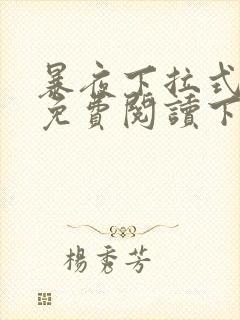 暴夜下拉式
免費閱讀下
楊秀芳